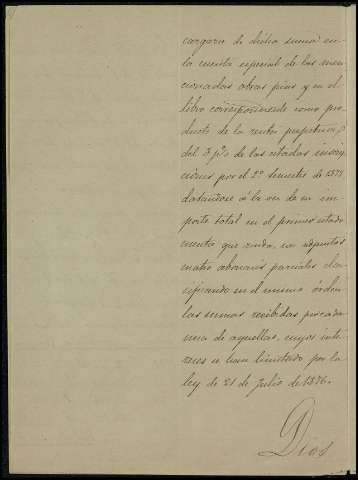 cargara de dicha suma en
la cuenta especial de las men
cionadas obras pias y en el
libro correspondiente como pro
ducto de la renta perpetua
del 3 p% de las citadas inscrip
ciones por el 2º Semestre de 1878
datandose á la vez de su im
porte total en el primer estado
mento que rinda, con adjuntos
cuatro abonarés parciales cla
sificando en el mismo órden
las sumas recibidas por cada
una de aquellas, cuyos inte
reses se han limitado por la
ley de 21 de Julio de 1876.
Dios